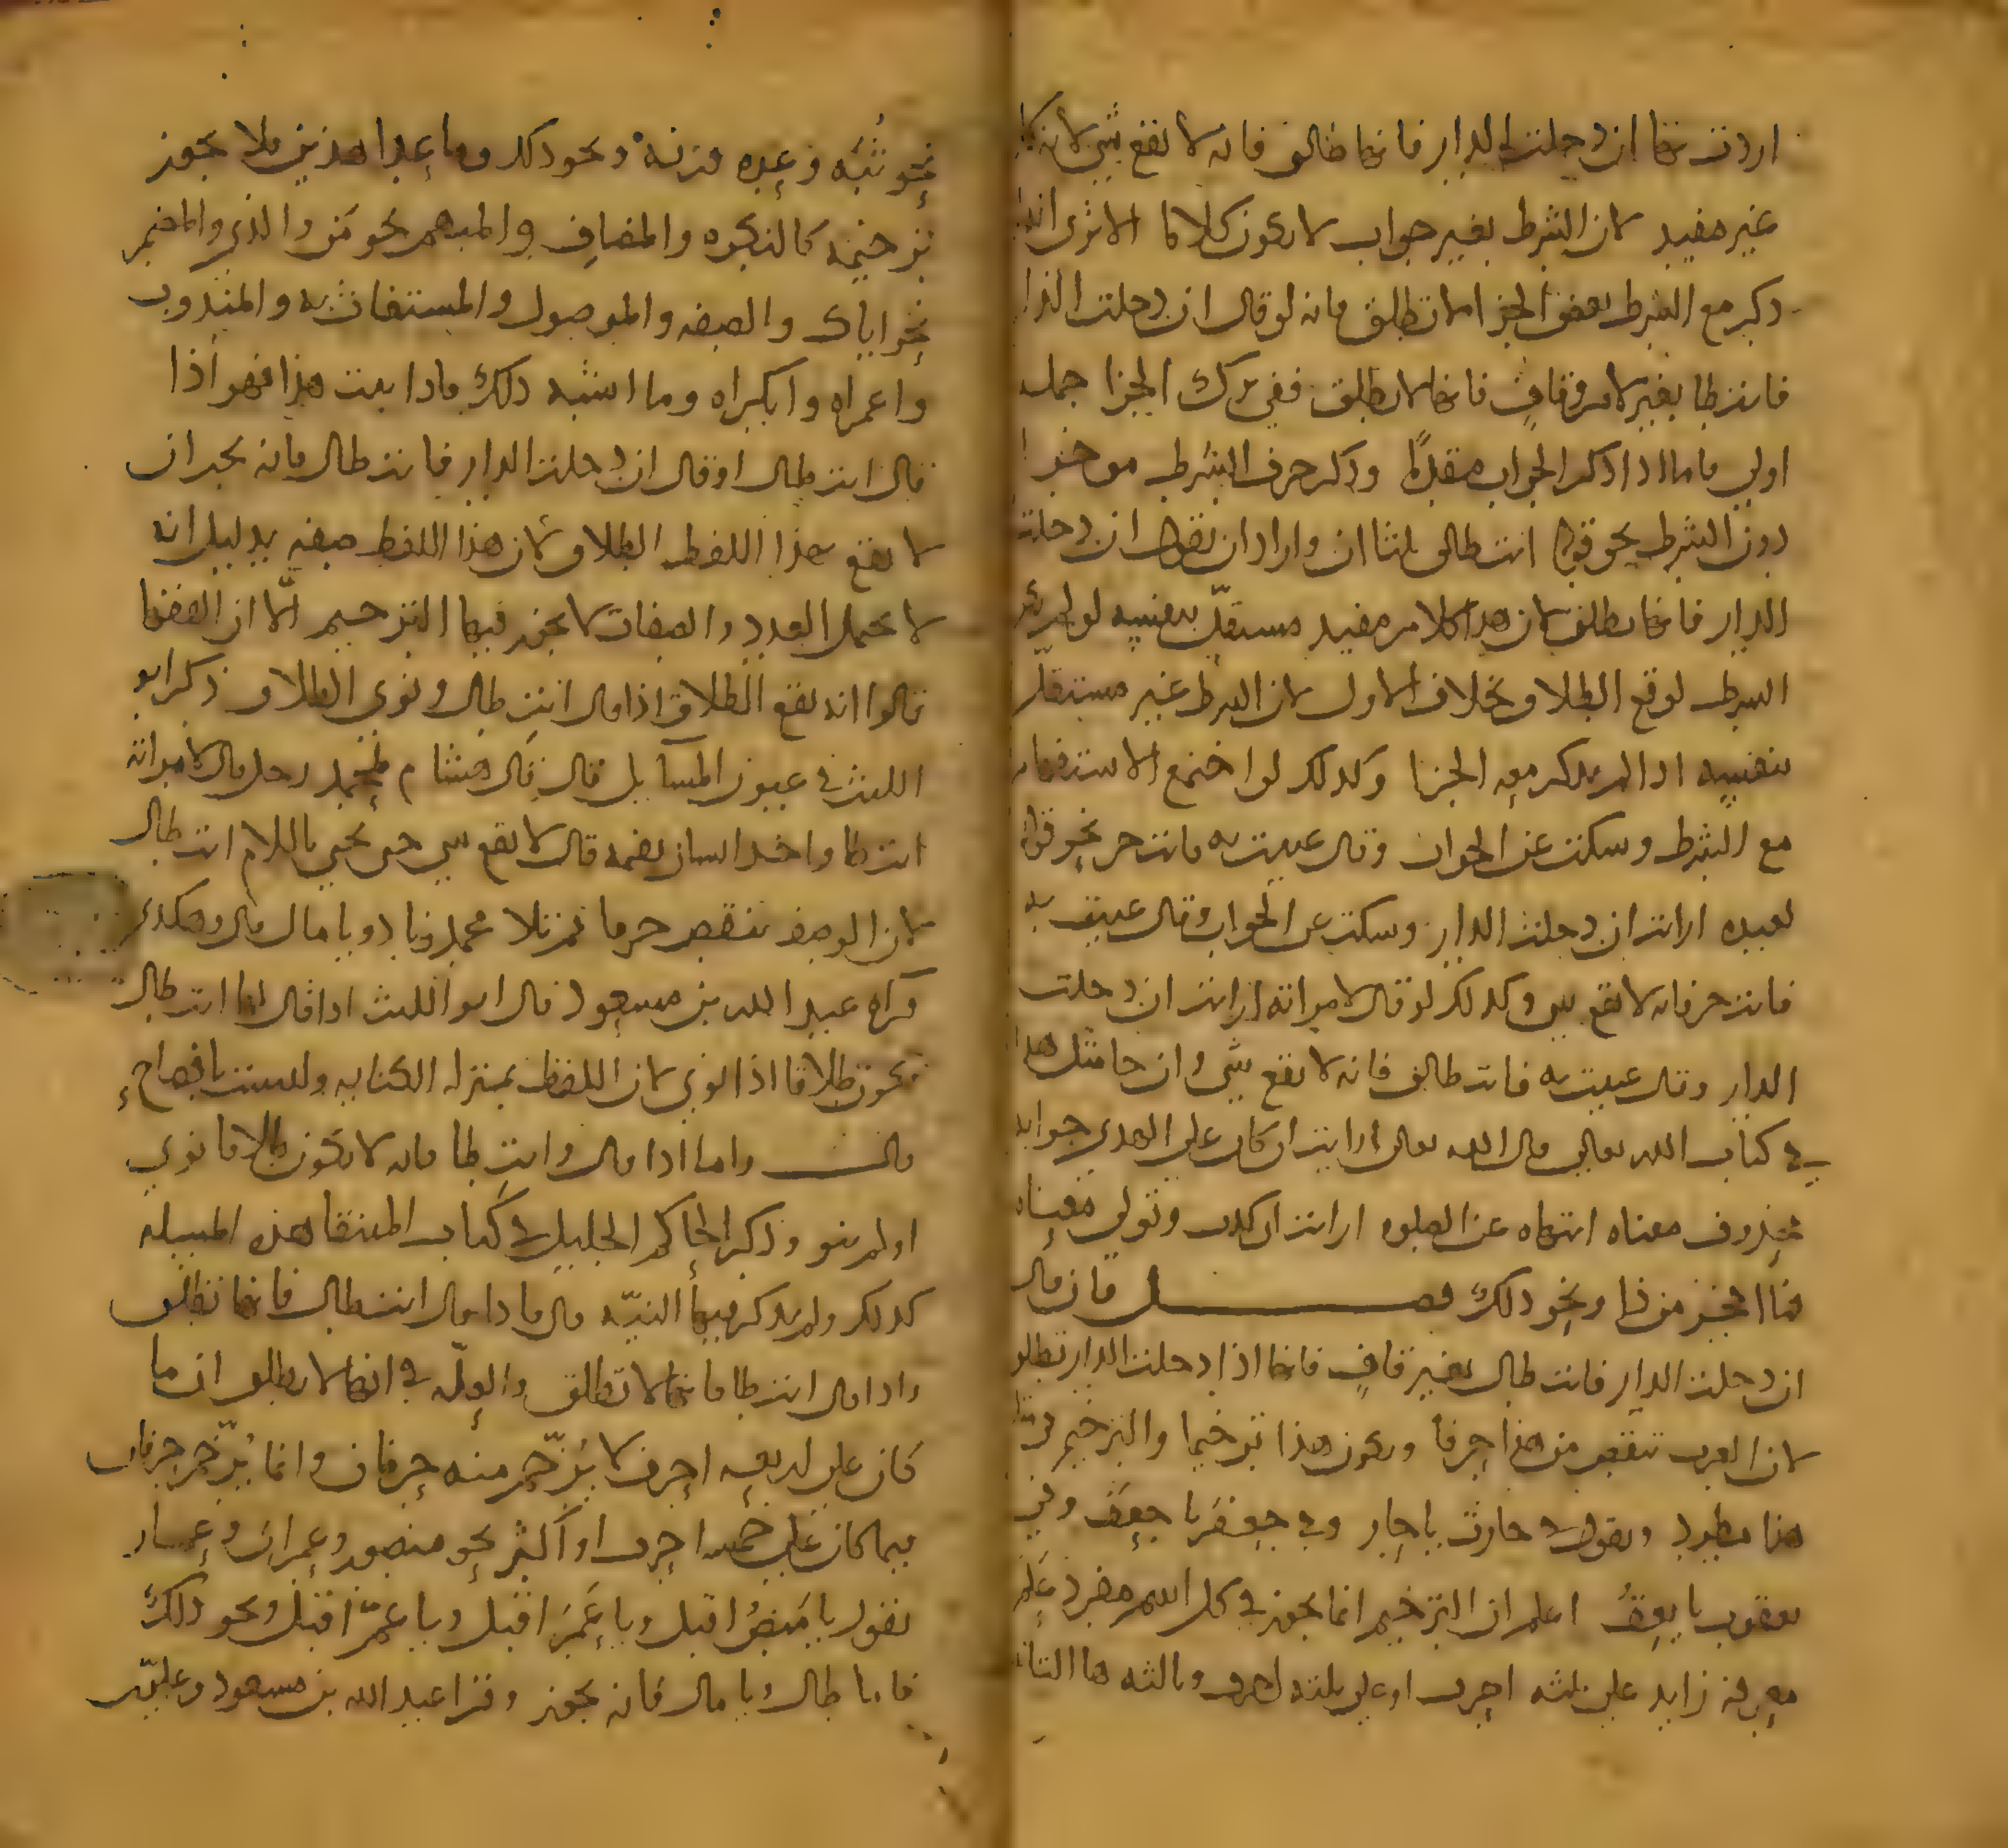 اردت بها ان دخلت الدار فانها طالق فانه لا يقع شي لانه كلام
غير مفيد لان الشرط بغير جواب لا يكون كلاما الا ترى انه اذا
ذكر مع الشرط بعض الجزا لم تطلق فانه لو قال ان دخلت الدار
فانت طا بغير لام وقاف فانها لا تطلق ففي ترك الجزا جملة
اولى فاما اذا ذكر الجواب مقدما وذكر حرف الشرط موخرا
دون الشرط نحو قوله انت طالق ثلثا ان واراد ان يقول ان دخلت
الدار فانها تطلق لان هذا كلام مفيد مستقل بنفسه لو لم يذكر
الشرط لوقع الطلاق بخلاف الاول لان الشرط غير مستقل
بنفسه اذا لم يذكر معه الجزا وكذلك لو اجتمع الاستفهام
مع الشرط وسكت عن الجواب وقال عنيت به فانت حر نحو قوله
لعبده ارايت ان دخلت الدار وسكت عن الجواب وقال عنيت به
فانت حر فانه لا يقع شي وكذلك لو قال لامراته ارايت ان دخلت
الدار وقال عنيت به فانت طالق فانه لا يقع شي وان جا مثل هذا
في كتاب الله تعالى قال الله تعالى ارايت ان كان على الهدى جوابه
محذوف معناه انتهاه عن الصلوه ارايت ان كذب وتولى معناه
فما اعجز من ذا ونحو ذلك فصل فان قال
ان دخلت الدار فانت طال بغير قاف فانها اذا دخلت الدار تطلق
لان العرب تنقص من هذا حرفا ويكون هذا ترخيما والترخيم في
هذا مطرد ويقول في حارث يا حار وفي جعفر يا جعف وفي
يعقوب يا يعق اعلم ان الترخيم انما يجوز في كل اسم مفرد علم
معرفة زايد على ثلثه احرف او على ثلثه احرف وثالثه ها التانيث
نحو ثبه وعده وزنه ونحو ذلك وما عدا هذين فلا يجوز
ترخيمه كالنكره والمضاف والمبهم نحو من والذي والمضمر
نحو اياك والصفه والموصول والمستغاث به والمندوب
واعمراه وابكراه وما اشبه ذلك فاذا ثبت هذا فهو اذا
قال انت طال او قال ان دخلت الدار فانت طال فانه يجب ان
لا يقع بهذا اللفظ الطلاق لان هذا اللفظ صفه بدليل انه
لا يحتمل العدد والصفات لا يجوز فيها الترخيم الا ان الفقها
قالوا انه يقع الطلاق اذا قال انت طال ونوى الطلاق ذكر ابو
الليث في عيون المسايل قال قال هشام لمحمد رجل قال لامراته
انت طا واخذ انسان بفمه قال لا يقع شي حتى يجي باللام انت طال
لان الوصف ينقص حرفا ثم تلا محمد ونادوا يا مال قال وهكذى
قراه عبد الله بن مسعود قال ابو الليث اذا قال لها انت طال
يكون طلاقا اذا نوى لان اللفظ بمنزله الكنايه وليست بافصاح
قال واما اذا قال وانت طا فانه لا يكون طلاقا نوى
او لم ينو وذكر الحاكم الجليل في كتاب المنتقا هذه المسيله
كذلك ولم يذكر فيها النيه قال فاذا قال انت طال فانها تطلق
واذا قال انت طا فانها لا تطلق والعله في انها لا تطلق ان ما
كان على اربعه احرف لا يرخم منه حرفان وانما يرخم حرفان
فيما كان على خمسه احرف او اكثر نحو منصور وعمران وعمار
نقول يا منص اقبل ويا عمر اقبل ويا عم اقبل ونحو ذلك
فاما طال ويا مال فانه يجوز وقرا عبد الله بن مسعود وعلي